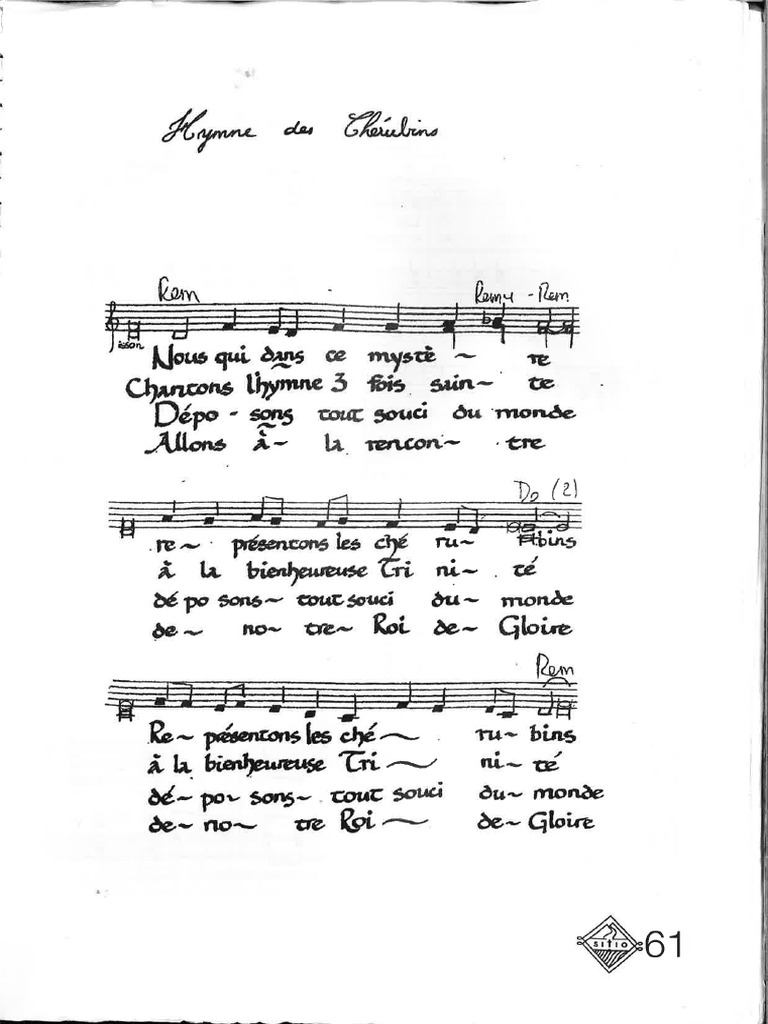 Hymne des Chérubins
Rem Rem4 - Rem
isson
Nous qui dans ce mystè - re
Chantons l'hymne 3 fois sain - te
Dépo - sons tout souci du monde
Allons à - la rencon - tre
Do (2)
re - présentons les ché ru - bins
à la bienheureuse Tri ni - té
dé po sons - tout souci du - monde
de - no - tre - Roi de - Gloire
Rem
Re - présentons les ché - ru - bins
à la bienheureuse Tri - ni - té
dé - po - sons - tout souci du - monde
de - no - tre Roi - de - Gloire
SITIO 61